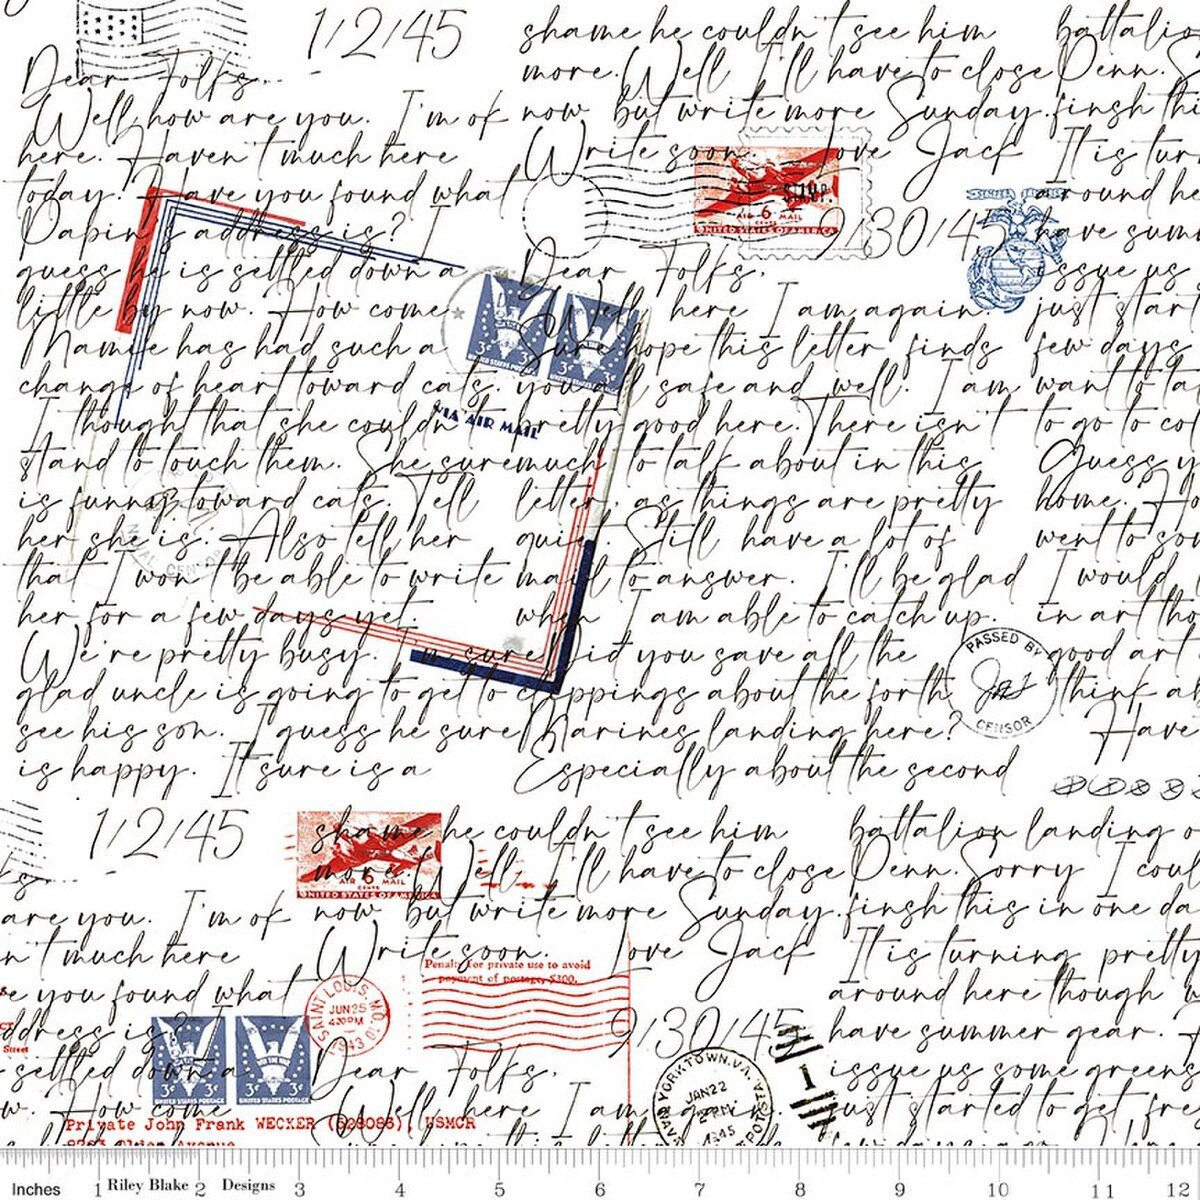 1/2/45
Dear Folks.
Well how are you. I'm ok
here. Haven't much here
today. Have you found what
Papin's address is? I
guess he is settled down a
little by now. How come
Mamie has had such a
change of heart toward cats.
I thought that she couldn't
stand to touch them. She sure
is funny toward cats. Tell
her she is. Also tell her
that I won't be able to write
her for a few days yet.
We're pretty busy. I'm sure
glad uncle is going to get to
see his son. I guess he sure
is happy. It sure is a
shame he couldn't see him
more. Well I'll have to close
now but write more Sunday.
Write soon. Love Jack
9/30/45
Dear Folks.
Well here I am again.
Sure hope this letter finds
you all safe and well. I am
pretty good here. There isn't
much to talk about in this
letter, as things are pretty
quiet. Still have a lot of
mail to answer. I'll be glad
when I am able to catch up.
Did you save all the
clippings about the forth
Marines landing here?
Especially about the second
Penn. S
finsh thi
It is turn
around he
have summ
issue us
just start
few days
want to ta
to go to col
Guess y
home. Ho
went to sou
I would
in art tho
good art
think ab
Have
AIR 6 MAIL
CENTS
UNITED STATES OF AMERICA
SEMPER
3¢ 3¢
UNITED STATES POSTAGE
3¢ 3¢
VIA AIR MAIL
NAVAL CENSOR
PASSED BY
CENSOR
1/2/45
are you. I'm ok
n't much here
e you found what
ddress is? I
settled down a
w. How come
shame he couldn't see him
more. Well I'll have to close
now but write more Sunday.
Write soon. Love Jack
9/30/45
Dear Folks.
Well here I am again.
battalion landing o
Penn. Sorry I coul
finsh this in one da
It is turning pretty
around here though w
have summer gear.
issue us some greens
just started to get fre
AIR 6 MAIL
CENTS
UNITED STATES OF AMERICA
Penalty for private use to avoid
payment of postage, $300.
SAINT LOUIS, MO.
JUN 25
4:30PM
1943
Street
3¢ 3¢
UNITED STATES POSTAGE
3¢ 3¢
UNITED STATES POSTAGE
Private John Frank WECKER (528086), USMCR
YORKTOWN, VA.
JAN 22
PM
1945
1
Inches 1 Riley Blake 2 Designs 3 4 5 6 7 8 9 10 11 12